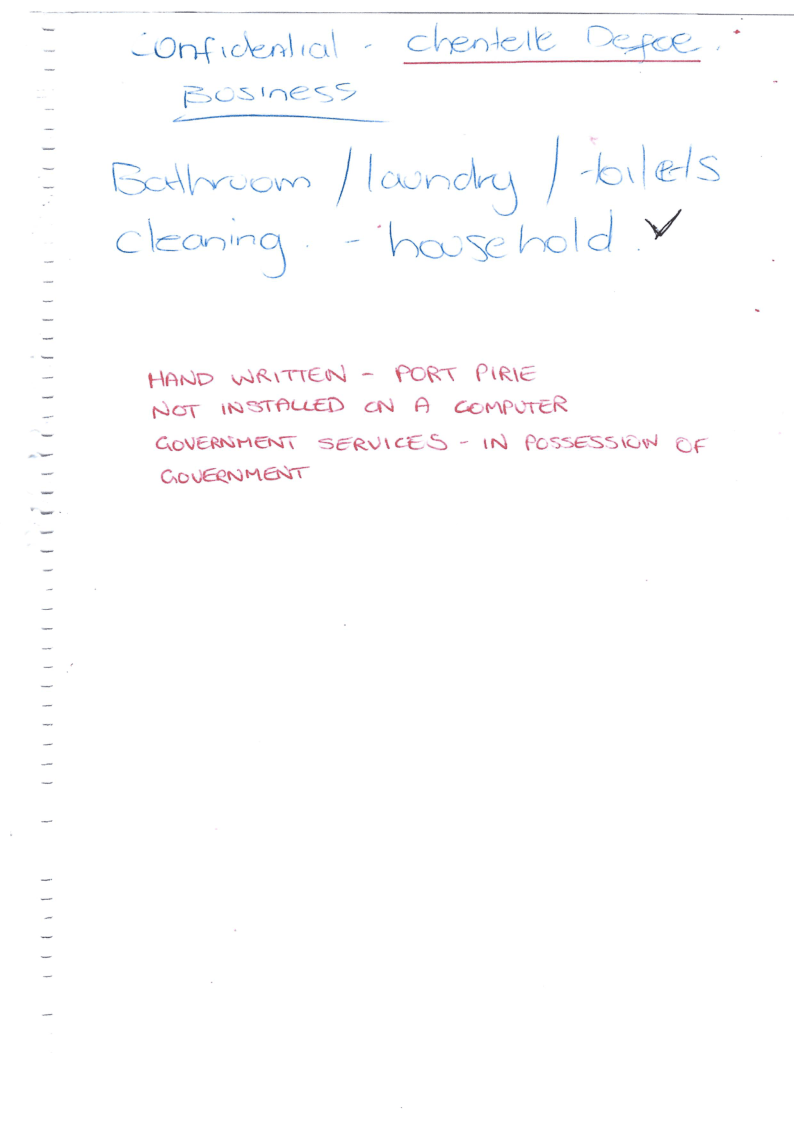 Confidential - Chentelle Defoe.
Business
Bathroom / laundry / toilets
cleaning. - household. ✓
HAND WRITTEN - PORT PIRIE
NOT INSTALLED ON A COMPUTER
GOVERNMENT SERVICES - IN POSSESSION OF
GOVERNMENT